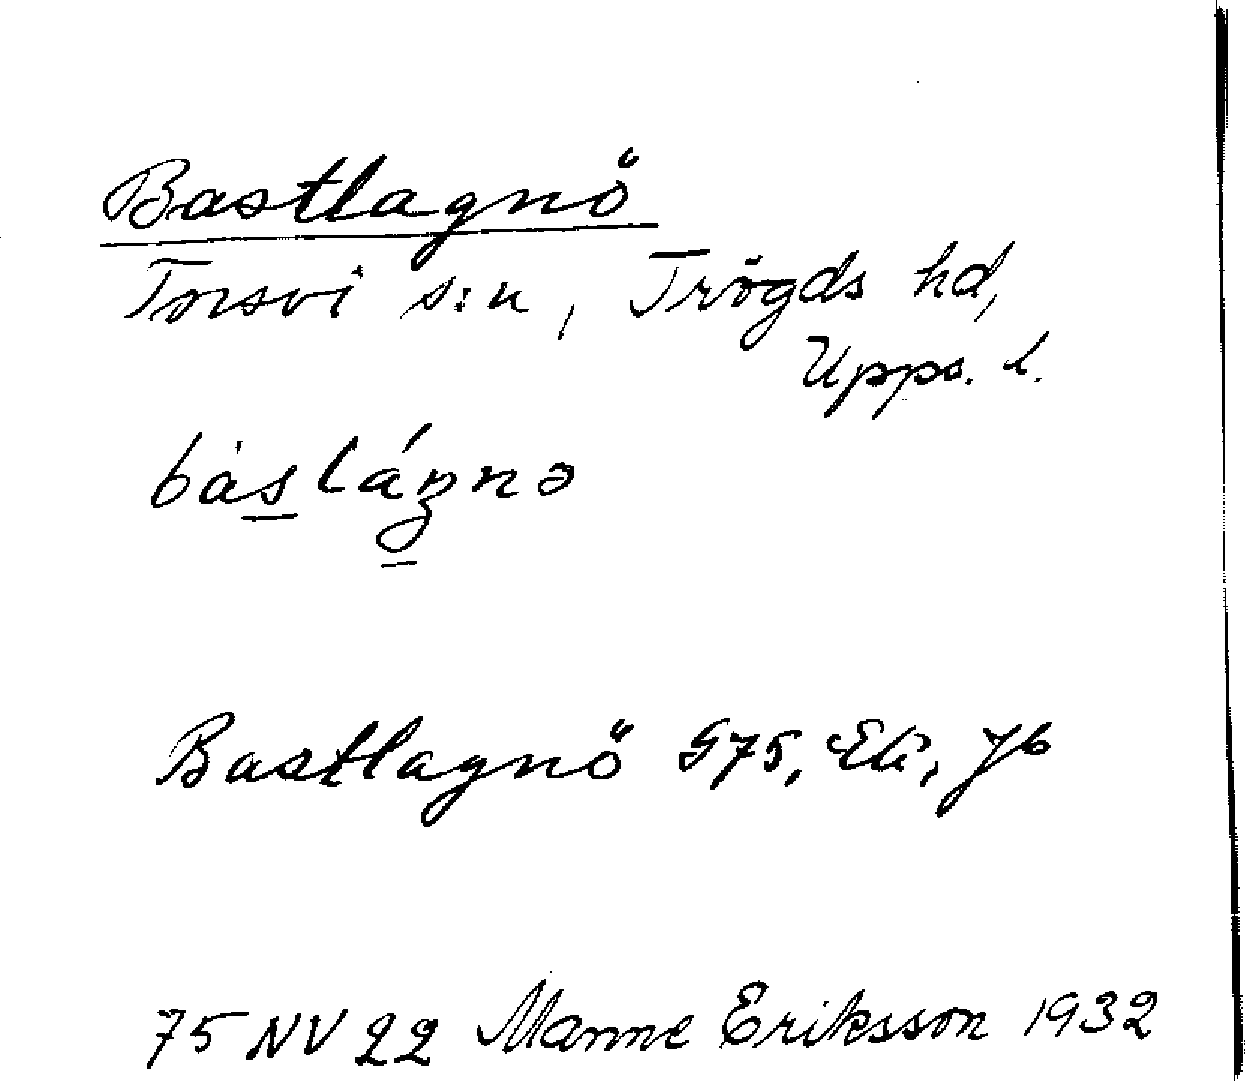 Bastlagnö
Torsvi s:n, Trögds hd,
Upps. l.
bàsláŋnə
Bastlagnö G75, Jb
75 NV 22 Manne Eriksson 1932